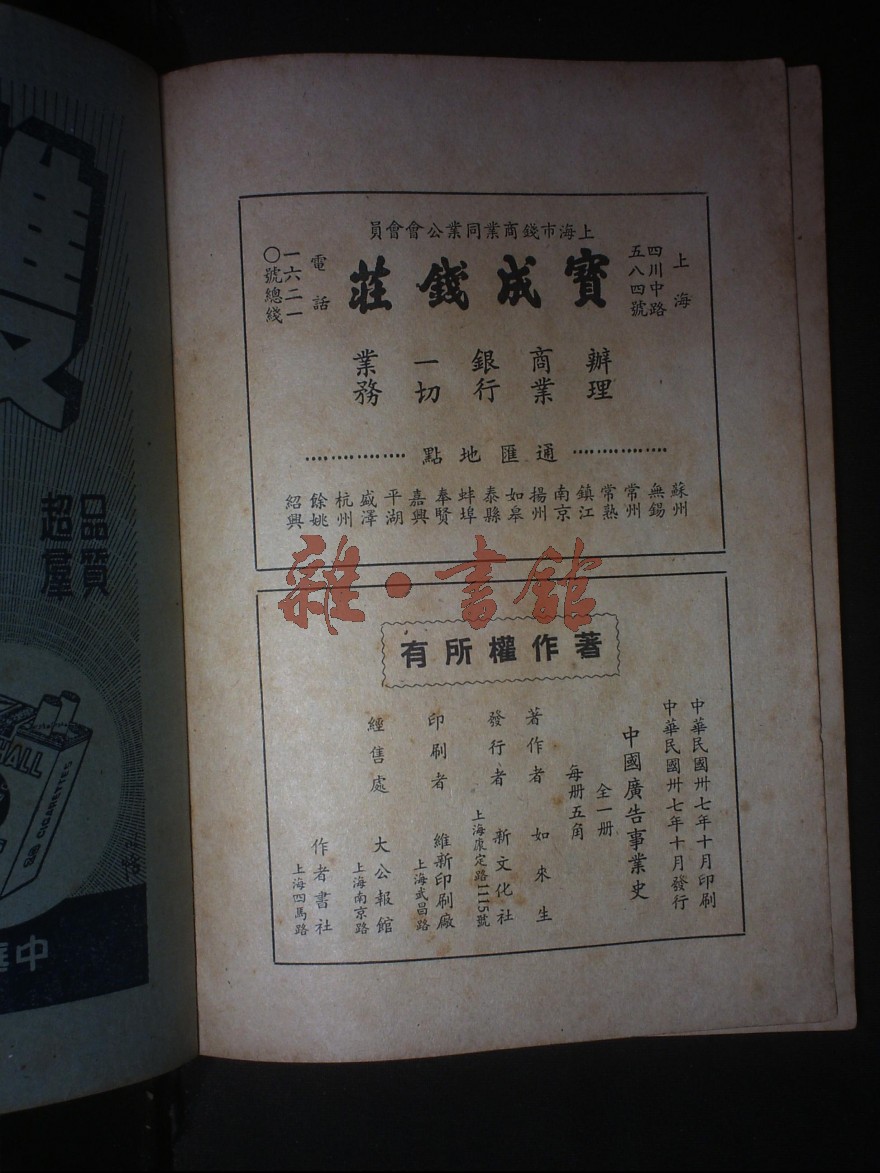 上海市錢商業同業公會會員
上海
四川中路
五八四號
寶成錢莊
電話
一六二一
〇號總綫
辦理
商業
銀行
一切
業務
通匯地點
蘇州
無錫
常州
常熟
鎮江
南京
揚州
如皋
泰縣
蚌埠
奉賢
嘉興
平湖
盛澤
杭州
餘姚
紹興
雜·書館
著作權所有
中華民國卅七年十月印刷
中華民國卅七年十月發行
中國廣告事業史
全一册
每册五角
著作者 如來生
發行者 新文化社
上海康定路1115號
印刷者 維新印刷廠
上海武昌路
經售處 大公報館
上海南京路
作者書社
上海四馬路
品質
超
HALL
CIGARETTES
中華